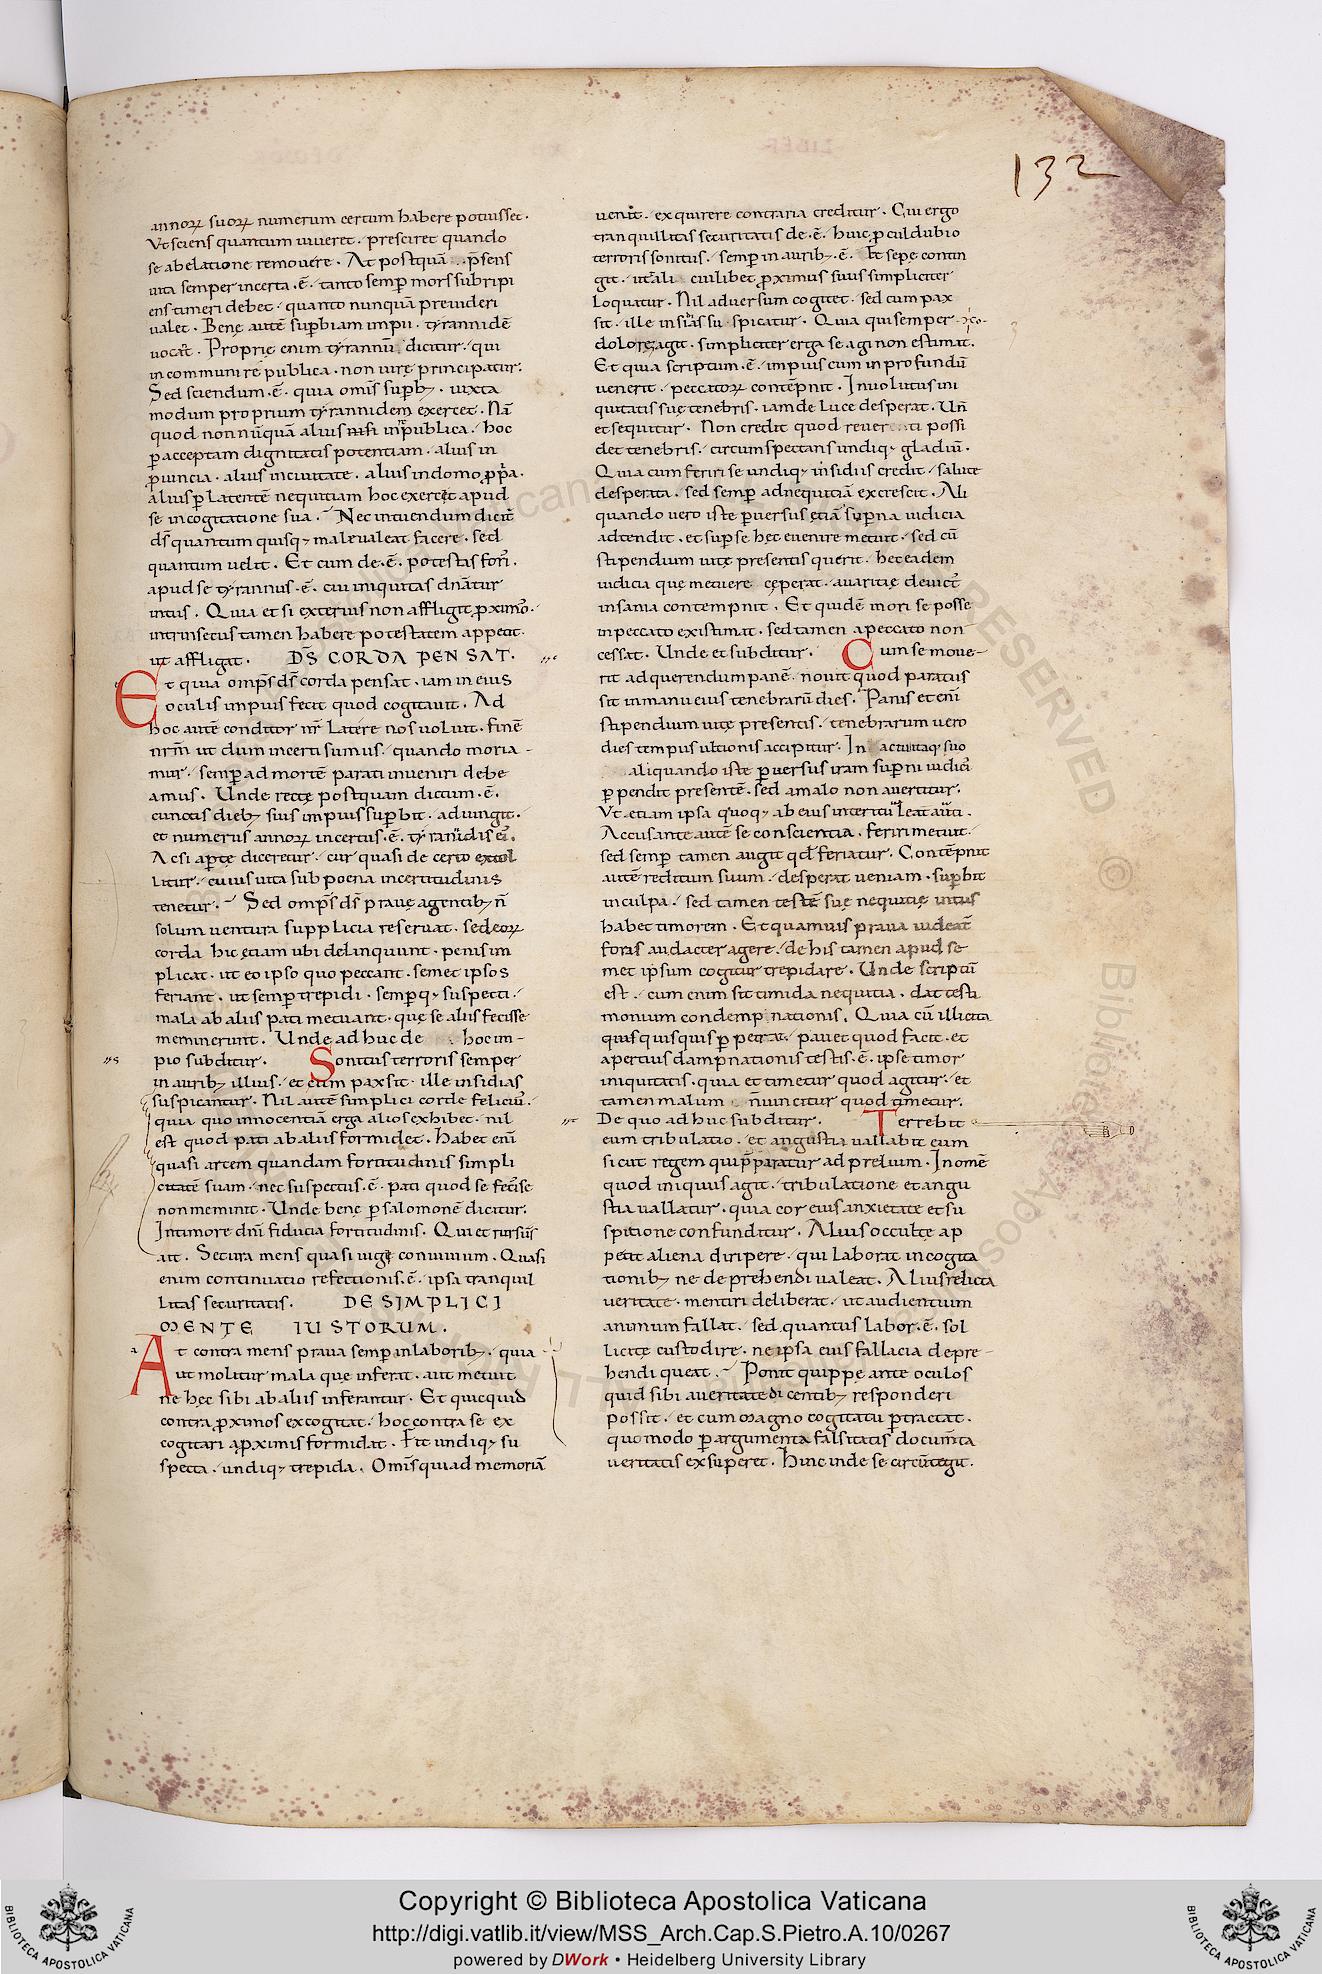 132
annoꝝ suoꝝ numerum certum habere potuisset.
Vt sciens quantum uiueret. presciret quando
se abelatione remouere. At postquā p̄sens
uita semper incerta .ē. tanto semꝑ mors subripi
ens timeri debet. quanto nunquā preuideri
ualet. Bene autē suꝑbiam impii. tyrannidē
uocat. Proprię enim tyrannū dicitur. qui
in communi re publica. non iure principatur.
Sed sciendum .ē. quia omīs suꝑbꝰ. iuxta
modum proprium tyrannidem exercet. Nā
quod non nūquā alius in publica. hoc
ꝑ acceptam dignitatis potentiam. alius in
ꝓuincia. alius in ciuitate. alius in domo ꝓpria.
alius ꝑ latentē nequitiam hoc exercet apud
se in cogitatione sua. Nec intuendum dicit
ds̄ quantum quisqꝫ male ualeat facere. sed
quantum uelit. Et cum de .ē. potestas foris.
apud se tyrannus .ē. cui iniquitas dnātur
intus. Quia et si exterius non affligit ꝓximos.
intrinsecus tamen habere potestatem appetit.
ut affligat. DS̄ CORDA PENSAT.
Et quia omp̄s ds̄ corda pensat. iam in eius
oculis impius fecit quod cogitauit. Ad
hoc autē conditor nr̄ latere nos uoluit. finē
nrm̄ ut dum incerti sumus. quando moria-
mur. semꝑ ad mortē parati inueniri debe
amus. Unde rectę postquam dictum .ē.
cunctis diebꝫ suis impius suꝑbit. adiungit.
et numerus annoꝝ incertus .ē. tyrannidis ei᷒.
Ac si aꝑtę diceretur. cur quasi de certo extol
litur. cuius uita sub poena incertitudinis
tenetur. Sed omp̄s ds̄ prauę agentibꝫ n̄
solum uentura supplicia reseruat. sed eoꝝ
corda hic etiam ubi delinquunt. penis im
plicat. ut eo ipso quo peccant. semet ipsos
feriant. ut semꝑ trepidi. semꝑqꝫ suspecti.
mala ab aliis pati metuant. quę se aliis fecisse
meminerunt. Unde ad huc de hoc im-
pio subditur. Sonitus terroris semper
in auribꝫ illius. et cum pax sit. ille insidias
suspicantur. Nil autē simplici corde felicius.
quia quo innocentiā erga alios exhibet. nil
est quod pati ab aliis formidet. Habet enī
quasi artem quandam fortitudinis simpli
citatē suam. nec suspectus .ē. pati quod se fecisse
non meminit. Unde bene ꝑ salomonē dicitur.
In timore dn̄i fiducia fortitudinis. Qui et rursus
ait. Secura mens quasi iuge conuiuium. Quasi
enim continuatio refectionis .ē. ipsa tranquil
litas securitatis. DE SIMPLICI
MENTE IUSTORUM.
At contra mens praua semꝑ in laboribꝫ. quia
aut molitur mala quę inferat. aut metuit
ne hec sibi ab aliis inferantur. Et quicquid
contra ꝓximos excogitat. hoc contra se ex
cogitari a ꝓximis formidat. Fit undiqꝫ su
specta. undiqꝫ trepida. Omīs qui ad memoriā
uenit. exquirere contraria creditur. Cui ergo
tranquillitas securitatis de .ē. huic ꝓcul dubio
terroris sonitus. semꝑ in auribꝫ .ē. Et sepe contin
git. ut ali cuilibet ꝓximus suus simpliciter
loquatur. Nil aduersum cogitet. sed cum pax
sit. ille insidias suspicatur. Quia qui semper
dolose agit. simpliciter erga se agi non estimat.
Et quia scriptum .ē. impius cum in profundū
uenerit. peccatoꝝ contēpnit. Inuolutus ini
quitatis suę tenebris. iam de luce desperat. Un̄
et sequitur. Non credit quod reuerti possi
de tenebris. circumspectans undiqꝫ gladiū.
Quia cum feriri se undiqꝫ insidiis credit. salute
desperata. sed semꝑ ad nequitiā excrescit. Ali
quando uero iste ꝑuersus etiā suꝑna iudicia
adtendit. et suꝑ se hęc euenire metuit. sed cū
stipendium uitę presentis querit. hec eadem
iudicia quę metuere cęperat. auaritię deuict᷒
insania contempnit. Et quidē mori se posse
in peccato existimat. sed tamen a peccato non
cessat. Unde et subditur. Cum se moue-
rit ad querendum panē. nouit quod paratus
sit in manu eius tenebrarū dies. Panis et enī
stipendium uitę presentis. tenebrarum uero
dies tempus ultionis accipitur. In actu itaqꝫ suo
aliquando iste ꝑuersus iram suꝑni iudicii
ꝑpendit presentē. sed a malo non auertitur.
Ut etiam ipsa quoqꝫ ab eius interitu ualeat auerti.
Accusante autē se conscientia. feriri metuit.
sed semꝑ tamen augit qd̄ feriatur. Contēpnit
autē reditum suum. desperat ueniam. suꝑbit
in culpa. sed tamen testē suę nequitię intus
habet timorem. Et quamuis praua uideat᷒
foris audacter agere. de his tamen apud se
met ipsum cogitur trepidare. Unde scriptū
est. cum enim sit timida nequitia. dat testi
monium condempnationis. Quia cū illicita
quis quis quis ꝑpetrat. pauet quod facit. et
apertius dampnationis testis .ē. ipse timor
iniquitatis. quia et timetur quod agitur. et
tamen malum n̄ uincitur quod timetur.
De quo ad huc subditur. Terrebit
eum tribulatio. et angustia uallabit eum
sicut regem qui p̄paratur ad prelium. In omē
quod iniquus agit. tribulatione et angu
stia uallatur. quia cor eius anxietate et su
spitione confunditur. Alius occultę ap
petit aliena diripere. qui laborat in cogita
tionibꝫ ne deprehendi ualeat. Alius relicta
ueritate. mentiri deliberat. ut audientium
animum fallat. sed quantus labor .ē. sol
licitę custodire. ne ipsa eius fallacia depre-
hendi queat. Ponit quippe ante oculos
quid sibi a ueritatē dicentibꝫ responderi
possit. et cum magno cogitatu ꝑtractat.
quomodo ꝑ argumenta falsitatis documenta
ueritatis exsuperet. Hinc inde se circūtegit.
Copyright © Biblioteca Apostolica Vaticana
http://digi.vatlib.it/view/MSS_Arch.Cap.S.Pietro.A.10/0267
powered by DWork • Heidelberg University Library
BIBLIOTECA APOSTOLICA VATICANA
BIBLIOTECA APOSTOLICA VATICANA